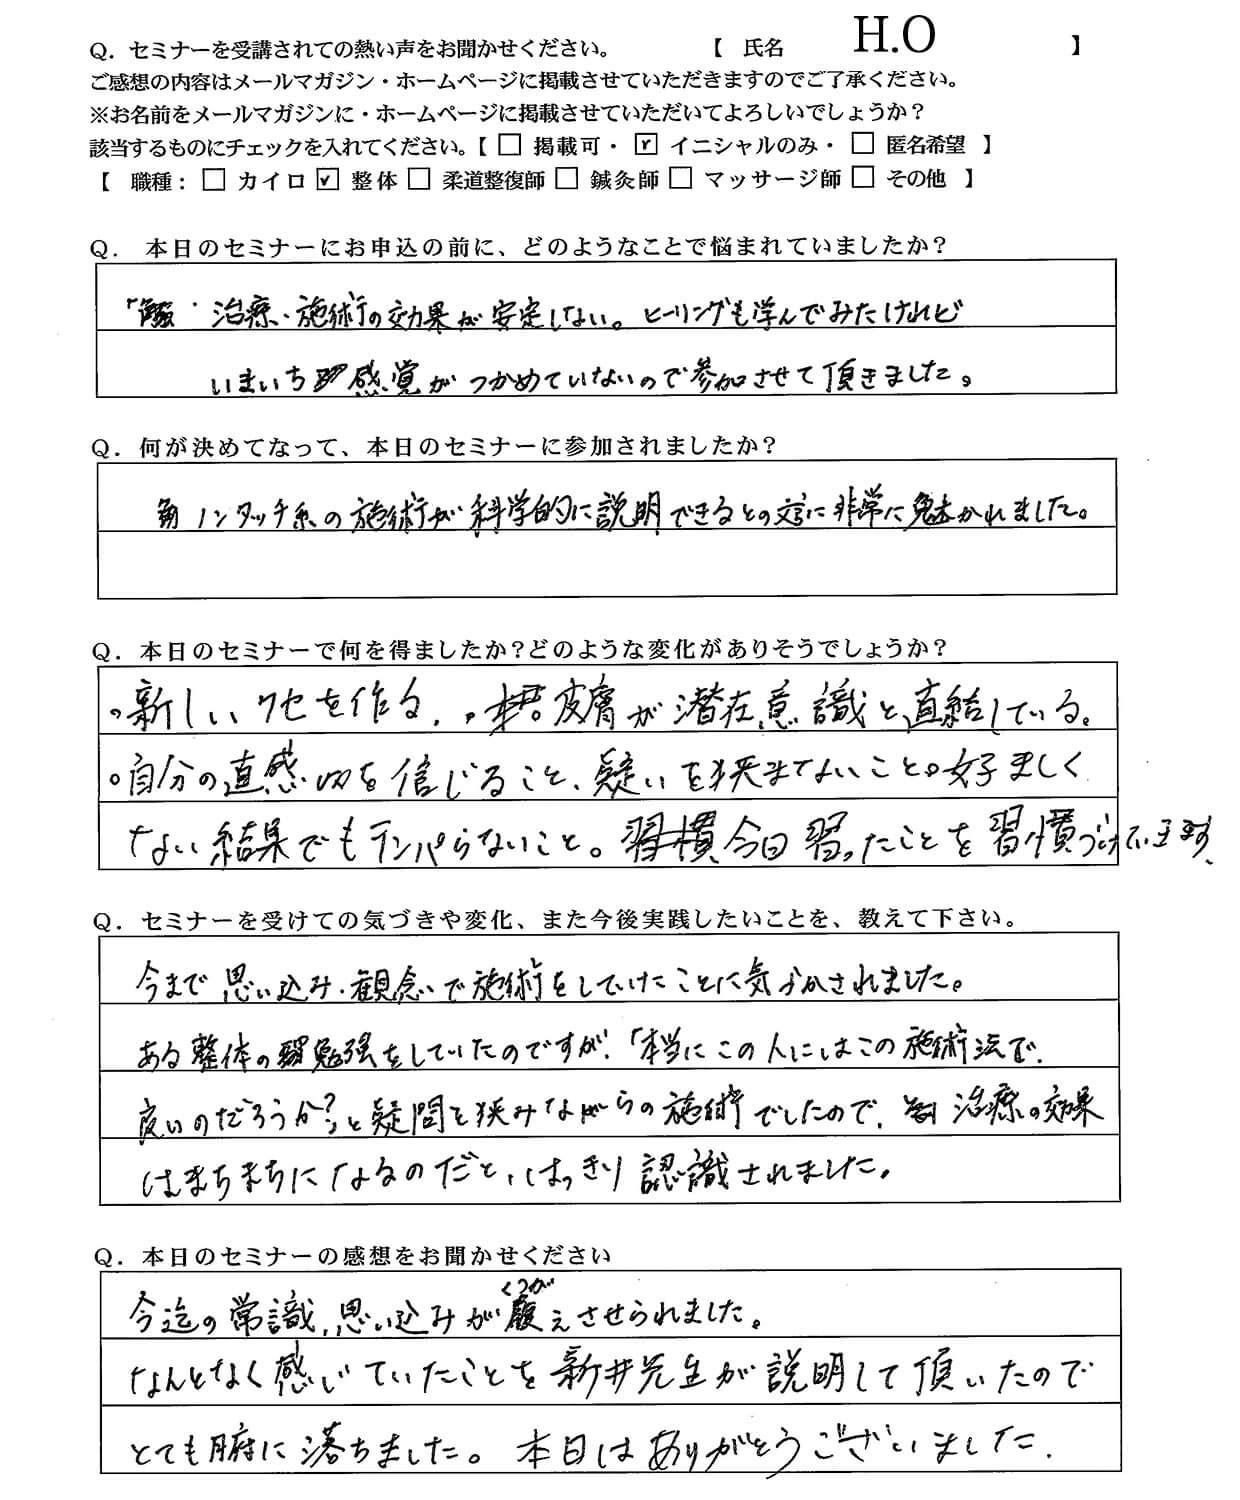 Q. セミナーを受講されての熱い声をお聞かせください。 【 氏名 H.O 】
ご感想の内容はメールマガジン・ホームページに掲載させていただきますのでご了承ください。
※お名前をメールマガジンに・ホームページに掲載させていただいてよろしいでしょうか？
該当するものにチェックを入れてください。【 □ 掲載可・ ☑ イニシャルのみ・ □ 匿名希望 】
【 職種： □ カイロ ☑ 整体 □ 柔道整復師 □ 鍼灸師 □ マッサージ師 □ その他 】
Q. 本日のセミナーにお申込の前に、どのようなことで悩まれていましたか？
治療・施術の効果が安定しない。ヒーリングも学んでみたけれど
いまいち感覚がつかめていないので参加させて頂きました。
Q. 何が決めてなって、本日のセミナーに参加されましたか？
ノンタッチ系の施術が科学的に説明できるとの文言に非常に魅かれました。
Q. 本日のセミナーで何を得ましたか？どのような変化がありそうでしょうか？
。新しいクセを作る. 。皮膚が潜在意識と直結している。
。自分の直感を信じること、疑いを挟まないこと。好ましく
ない結果でもテンパらないこと。今日習ったことを習慣づけていきます、
Q. セミナーを受けての気づきや変化、また今後実践したいことを、教えて下さい。
今まで思い込み・観念で施術をしていたことに気づかされました。
ある整体の勉強をしていたのですが、「本当にこの人にはこの施術法で、
良いのだろうか？」と疑問を挟みながらの施術でしたので、治療の効果
はまちまちになるのだと、はっきり認識されました。
Q. 本日のセミナーの感想をお聞かせください
今迄の常識、思い込みが覆(くつが)えさせられました。
なんとなく感じていたことを新井先生が説明して頂いたので
とても腑に落ちました。本日はありがとうございました.